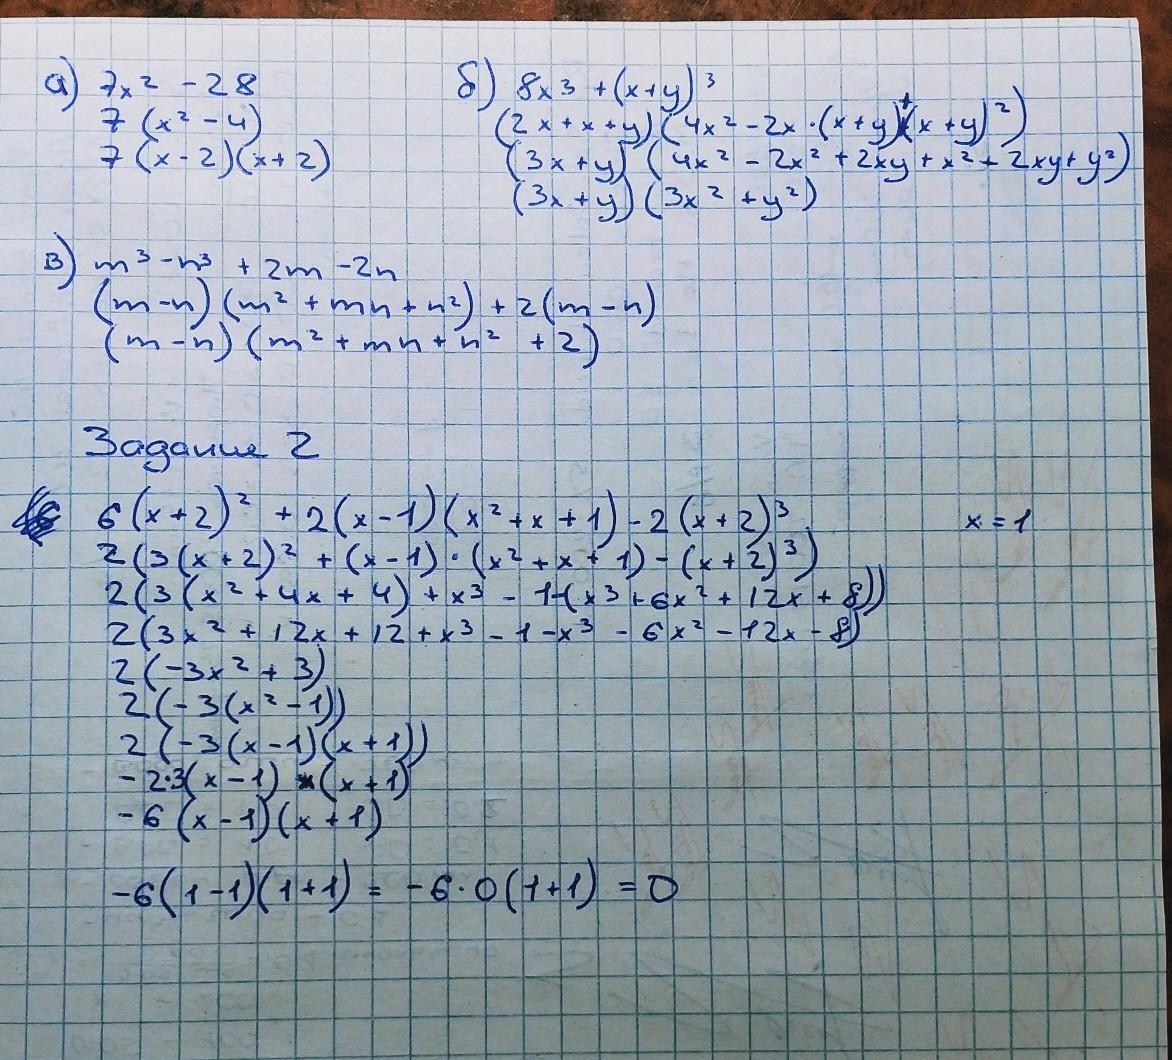 а) 7x² - 28
7 (x² - 4)
7 (x - 2)(x + 2)
б) 8x³ + (x+y)³
(2x + x + y)(4x² - 2x · (x + y) + (x + y)²)
(3x + y) (4x² - 2x² + 2xy + x² + 2xy + y²)
(3x + y) (3x² + y²)
в) m³ - n³ + 2m - 2n
(m - n) (m² + mn + n²) + 2(m - n)
(m - n) (m² + mn + n² + 2)
Задание 2
6(x+2)² + 2(x - 1)(x² + x + 1) - 2(x+2)³ x = 1
2(3(x+2)² + (x-1) · (x² + x + 1) - (x+2)³)
2(3(x² + 4x + 4) + x³ - 1 - (x³ + 6x² + 12x + 8))
2(3x² + 12x + 12 + x³ - 1 - x³ - 6x² - 12x - 8)
2(-3x² + 3)
2(-3(x² - 1))
2(-3(x - 1)(x + 1))
-2·3(x - 1) (x + 1)
-6(x - 1)(x + 1)
-6(1-1)(1+1) = -6·0(1+1) = 0